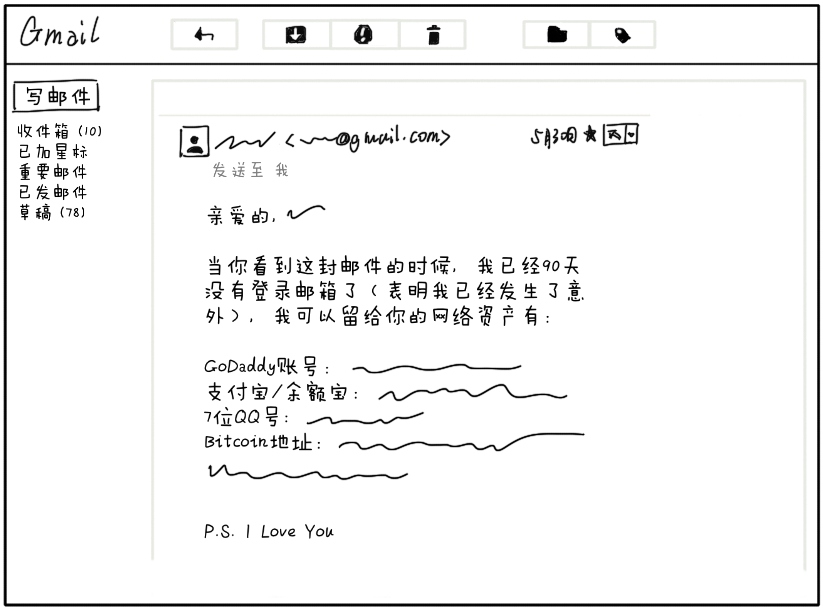 Gmail
写邮件
收件箱 (10)
已加星标
重要邮件
已发邮件
草稿 (78)
@gmail.com>
5月30日
发送至 我
亲爱的,
当你看到这封邮件的时候, 我已经90天
没有登录邮箱了 (表明我已经发生了意
外), 我可以留给你的网络资产有:
GoDaddy账号:
支付宝/余额宝:
7位QQ号:
Bitcoin地址:
P.S. I Love You